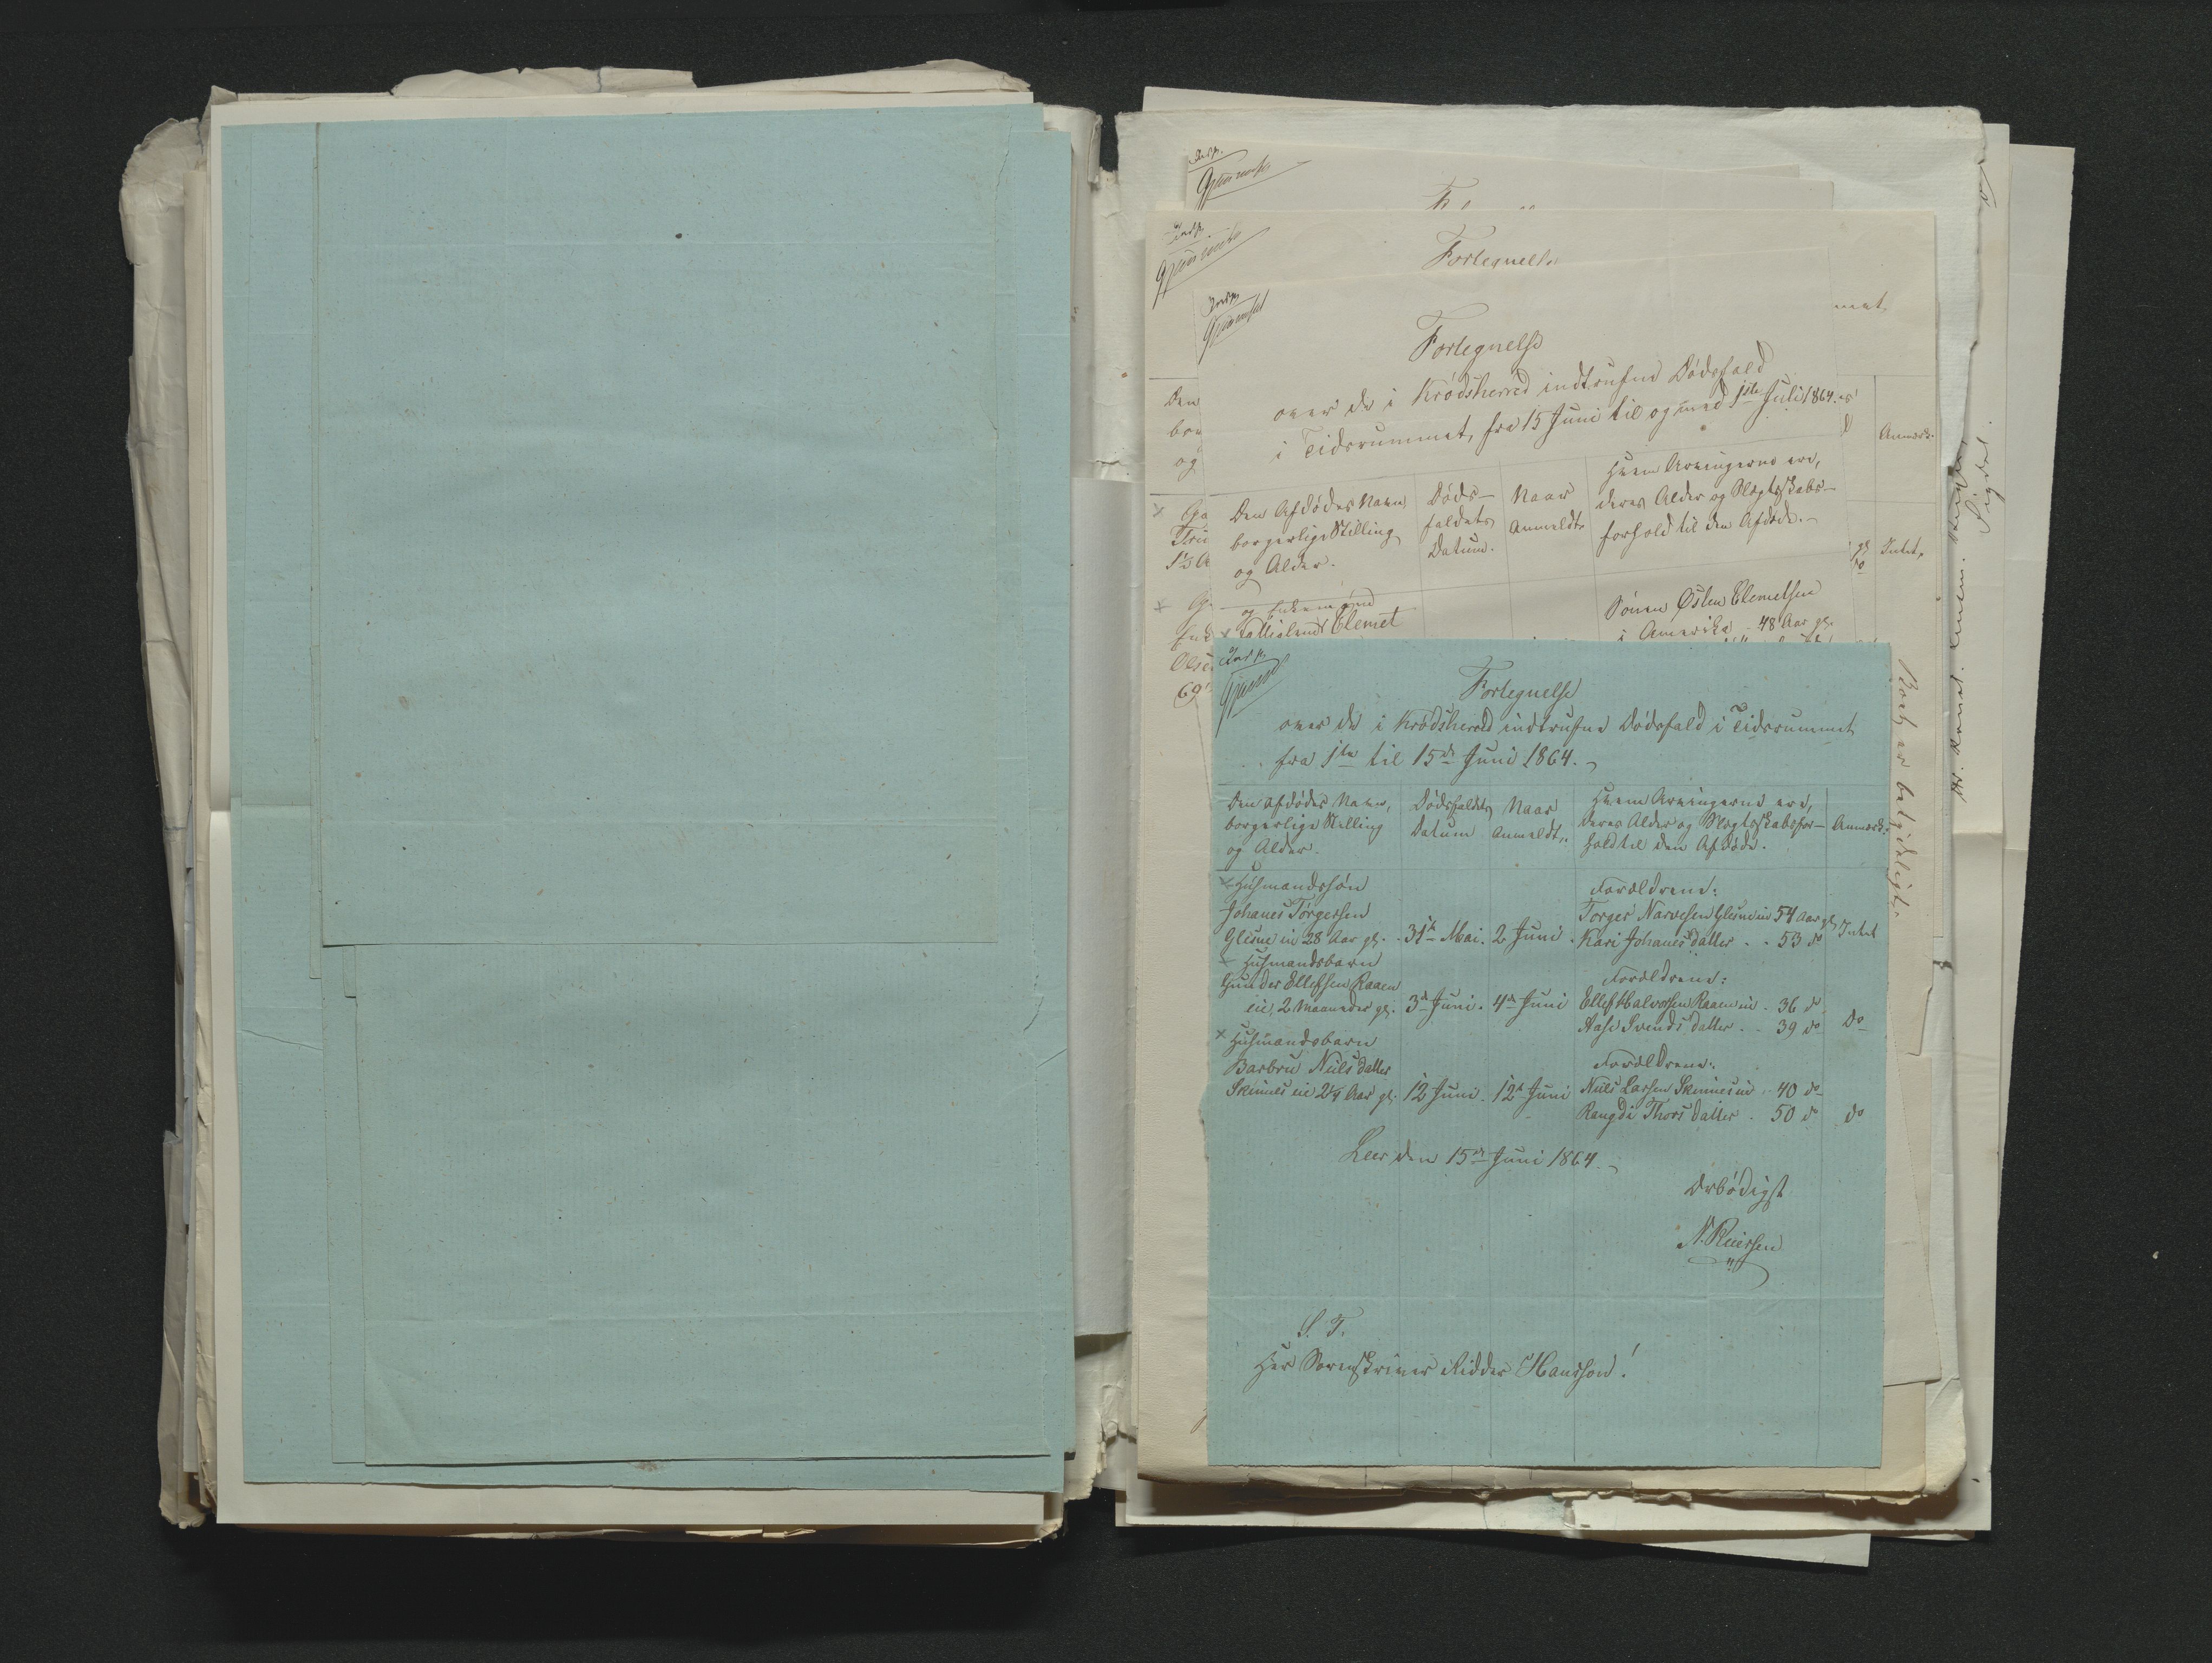 Fortegnelse
Fortegnelse
over de i Krødsherred indtrufne Dødsfald
i Tidsrummet fra 15 Juni til og med 1ste Juli 1864.
Den Afdødes Navn,
borgerlige Stilling
og Alder.
Døds-
faldets
Datum.
Naar
Anmeldt.
Hvem Arvingerne ere,
deres Alder og Slægtskabs-
forhold til den Afdøde.
Anmærk.
Intet.
og Enkemand
Fattiglem Elemet
Sønen Østen Elemetsen
i Amerika - 48 Aar gl.
Sigdal.
Fortegnelse
over de i Krødsherred indtrufne Dødsfald i Tidsrummet
fra 1ste til 15de Juni 1864.
Den Afdødes Navn,
borgerlige Stilling
og Alder.
Dødsfaldets
Datum
Naar
Anmeldt.
Hvem Arvingerne ere,
deres Alder og Slægtskabsfor-
hold til den Afdøde.
Anmærk.
Husmandssøn
Johanes Torgersen
Glesne eie 28 Aar gl. 31te Mai. 2 Juni.
Forældrene:
Torger Narvesen Glesneeie 54 Aar gl.
Kari Johanesdatter 53 do
Intet
Husmandsbarn
Gunder Ellefsen Raaen
eie, 2 Maaneder gl. 3de Juni. 4de Juni
Forældrene:
Ellef Halvorsen Raaeneie 36 do
Aase Svendsdatter 39 do
Do
Husmandsbarn
Barbru Nielsdatter
Skinnes eie 2¼ Aar gl. 12 Juni. 12te Juni
Forældrene:
Niels Larsen Skinneseie 40 do
Rangdi Thorsdatter 50 do
do
Leer den 15de Juni 1864.
Ærbødigst
S. T.
Herr Sorenskriver Ridder Hansson!